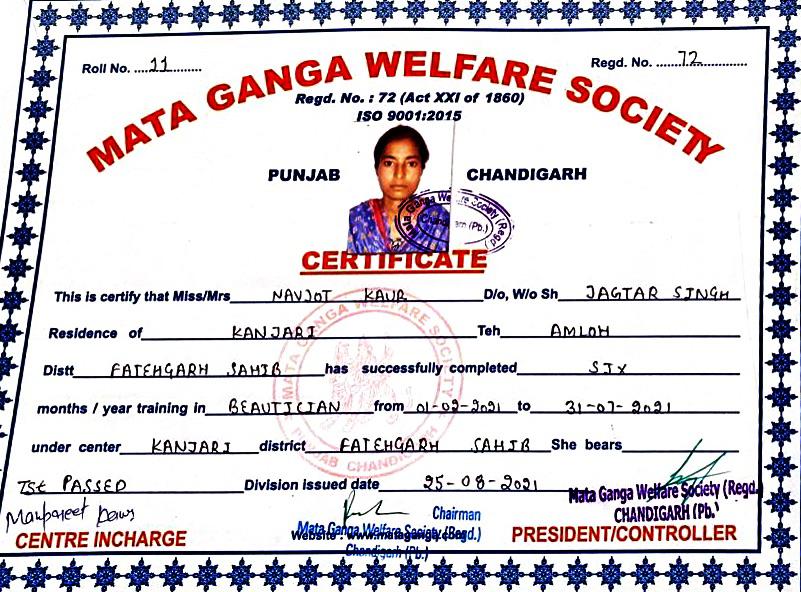 Roll No. ....11.........
Regd. No. .....72.......
MATA GANGA WELFARE SOCIETY
Regd. No. : 72 (Act XXI of 1860)
ISO 9001:2015
PUNJAB CHANDIGARH
CERTIFICATE
This is certify that Miss/Mrs NAVJOT KAUR D/o, W/o Sh JAGTAR SINGH
Residence of KANJARI Teh AMLOH
Distt FATEHGARH SAHIB has successfully completed SIX
months / year training in BEAUTICIAN from 01-02-2021 to 31-07-2021
under center KANJARI district FATEHGARH SAHIB She bears
Ist PASSED Division issued date 25-08-2021
Mata Ganga Welfare Society (Regd.
CHANDIGARH (Pb.)
Chairman
Mata Ganga Welfare Society (Regd.)
Chandigarh (Pb.)
CENTRE INCHARGE
PRESIDENT/CONTROLLER
MATA GANGA WELFARE SOCIETY
PUNJAB CHANDIGARH